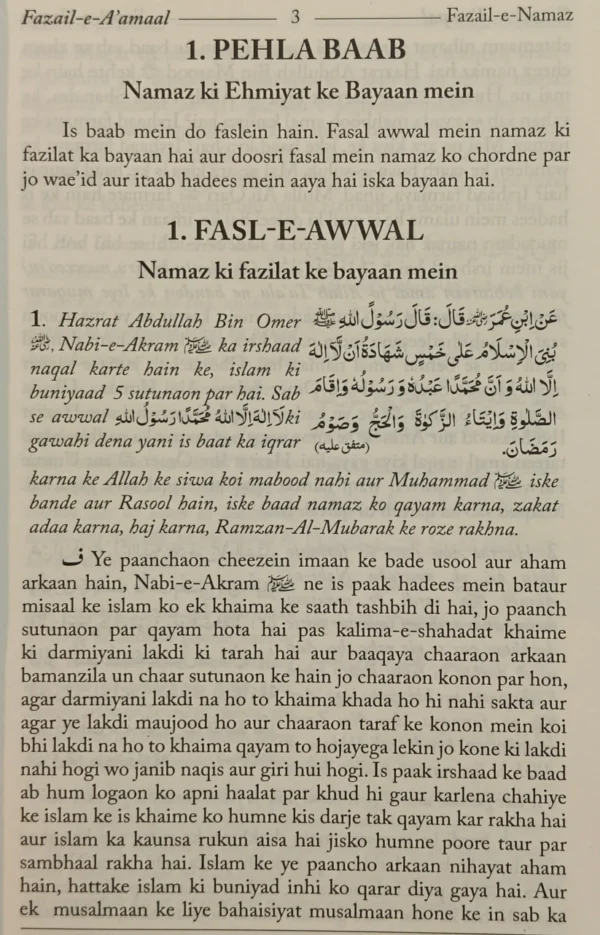 Fazail-e-A'amaal 3 Fazail-e-Namaz
1. PEHLA BAAB
Namaz ki Ehmiyat ke Bayaan mein
Is baab mein do faslein hain. Fasal awwal mein namaz ki
fazilat ka bayaan hai aur doosri fasal mein namaz ko chordne par
jo wae'id aur itaab hadees mein aaya hai iska bayaan hai.
1. FASL-E-AWWAL
Namaz ki fazilat ke bayaan mein
1. Hazrat Abdullah Bin Omer
رضي الله عنه, Nabi-e-Akram ﷺ ka irshaad
naqal karte hain ke, islam ki
buniyaad 5 sutunaon par hai. Sab
se awwal لَا إِلٰهَ إِلَّا اللهُ مُحَمَّدٌ رَسُوْلُ اللهِ ki
gawahi dena yani is baat ka iqrar
عَنْ اِبْنِ عُمَرَ رضي الله عنه قَالَ: قَالَ رَسُوْلُ اللهِ ﷺ
بُنِيَ الْاِسْلَامُ عَلٰى خَمْسٍ شَهَادَةُ اَنْ لَّا اِلٰهَ
اِلَّا اللهُ وَ اَنَّ مُحَمَّدًا عَبْدُهٗ وَ رَسُوْلُهٗ وَاِقَامِ
الصَّلٰوةِ وَاِيْتَاءِ الزَّكٰوةِ وَالْحَجِّ وَصَوْمِ
رَمَضَانَ. (متفق عليه)
karna ke Allah ke siwa koi mabood nahi aur Muhammad ﷺ iske
bande aur Rasool hain, iske baad namaz ko qayam karna, zakat
adaa karna, haj karna, Ramzan-Al-Mubarak ke roze rakhna.
ف Ye paanchaon cheezein imaan ke bade usool aur aham
arkaan hain, Nabi-e-Akram ﷺ ne is paak hadees mein bataur
misaal ke islam ko ek khaima ke saath tashbih di hai, jo paanch
sutunaon par qayam hota hai pas kalima-e-shahadat khaime
ki darmiyani lakdi ki tarah hai aur baaqaya chaaraon arkaan
bamanzila un chaar sutunaon ke hain jo chaaraon konon par hon,
agar darmiyani lakdi na ho to khaima khada ho hi nahi sakta aur
agar ye lakdi maujood ho aur chaaraon taraf ke konon mein koi
bhi lakdi na ho to khaima qayam to hojayega lekin jo kone ki lakdi
nahi hogi wo janib naqis aur giri hui hogi. Is paak irshaad ke baad
ab hum logaon ko apni haalat par khud hi gaur karlena chahiye
ke islam ke is khaime ko humne kis darje tak qayam kar rakha hai
aur islam ka kaunsa rukun aisa hai jisko humne poore taur par
sambhaal rakha hai. Islam ke ye paancho arkaan nihayat aham
hain, hattake islam ki buniyad inhi ko qarar diya gaya hai. Aur
ek musalmaan ke liye bahaisiyat musalmaan hone ke in sab ka